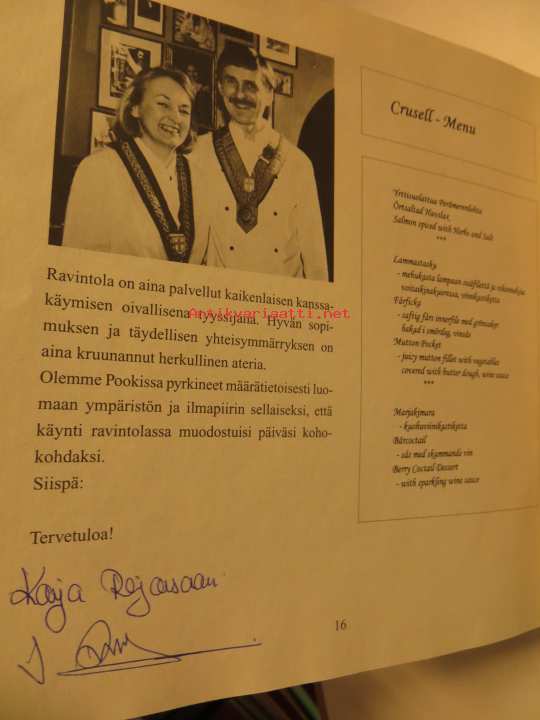 Ravintola on aina palvellut kaikenlaisen kanssa-
käymisen oivallisena tyyssijana. Hyvän sopi-
muksen ja täydellisen yhteisymmärryksen on
aina kruunannut herkullinen ateria.
Olemme Pookissa pyrkineet määrätietoisesti luo-
maan ympäristön ja ilmapiirin sellaiseksi, että
käynti ravintolassa muodostuisi päiväsi koho-
kohdaksi.
Siispä:
Tervetuloa!
Kaija
16
Crusell - Menu
Yrttisuolattua Perämerenlohta
Örtsaltad Havslax
Salmon spiced with Herbs and Salt
***
Lammastasku
- mehukasta lampaan sisäfilettä ja vihanneksia
voitaikinakuoressa, viinikastiketta
Fårficka
- saftig fårs innerfile med grönsaker
bakad i smördeg, vinsås
Mutton Pocket
- juicy mutton fillet with vegetables
covered with butter dough, wine sauce
***
Marjakimara
- kuohuviinikastiketta
Bärcoctail
- sås med skummande vin
Berry Coctail Dessert
- with sparkling wine sauce
Antikvariaatti.net